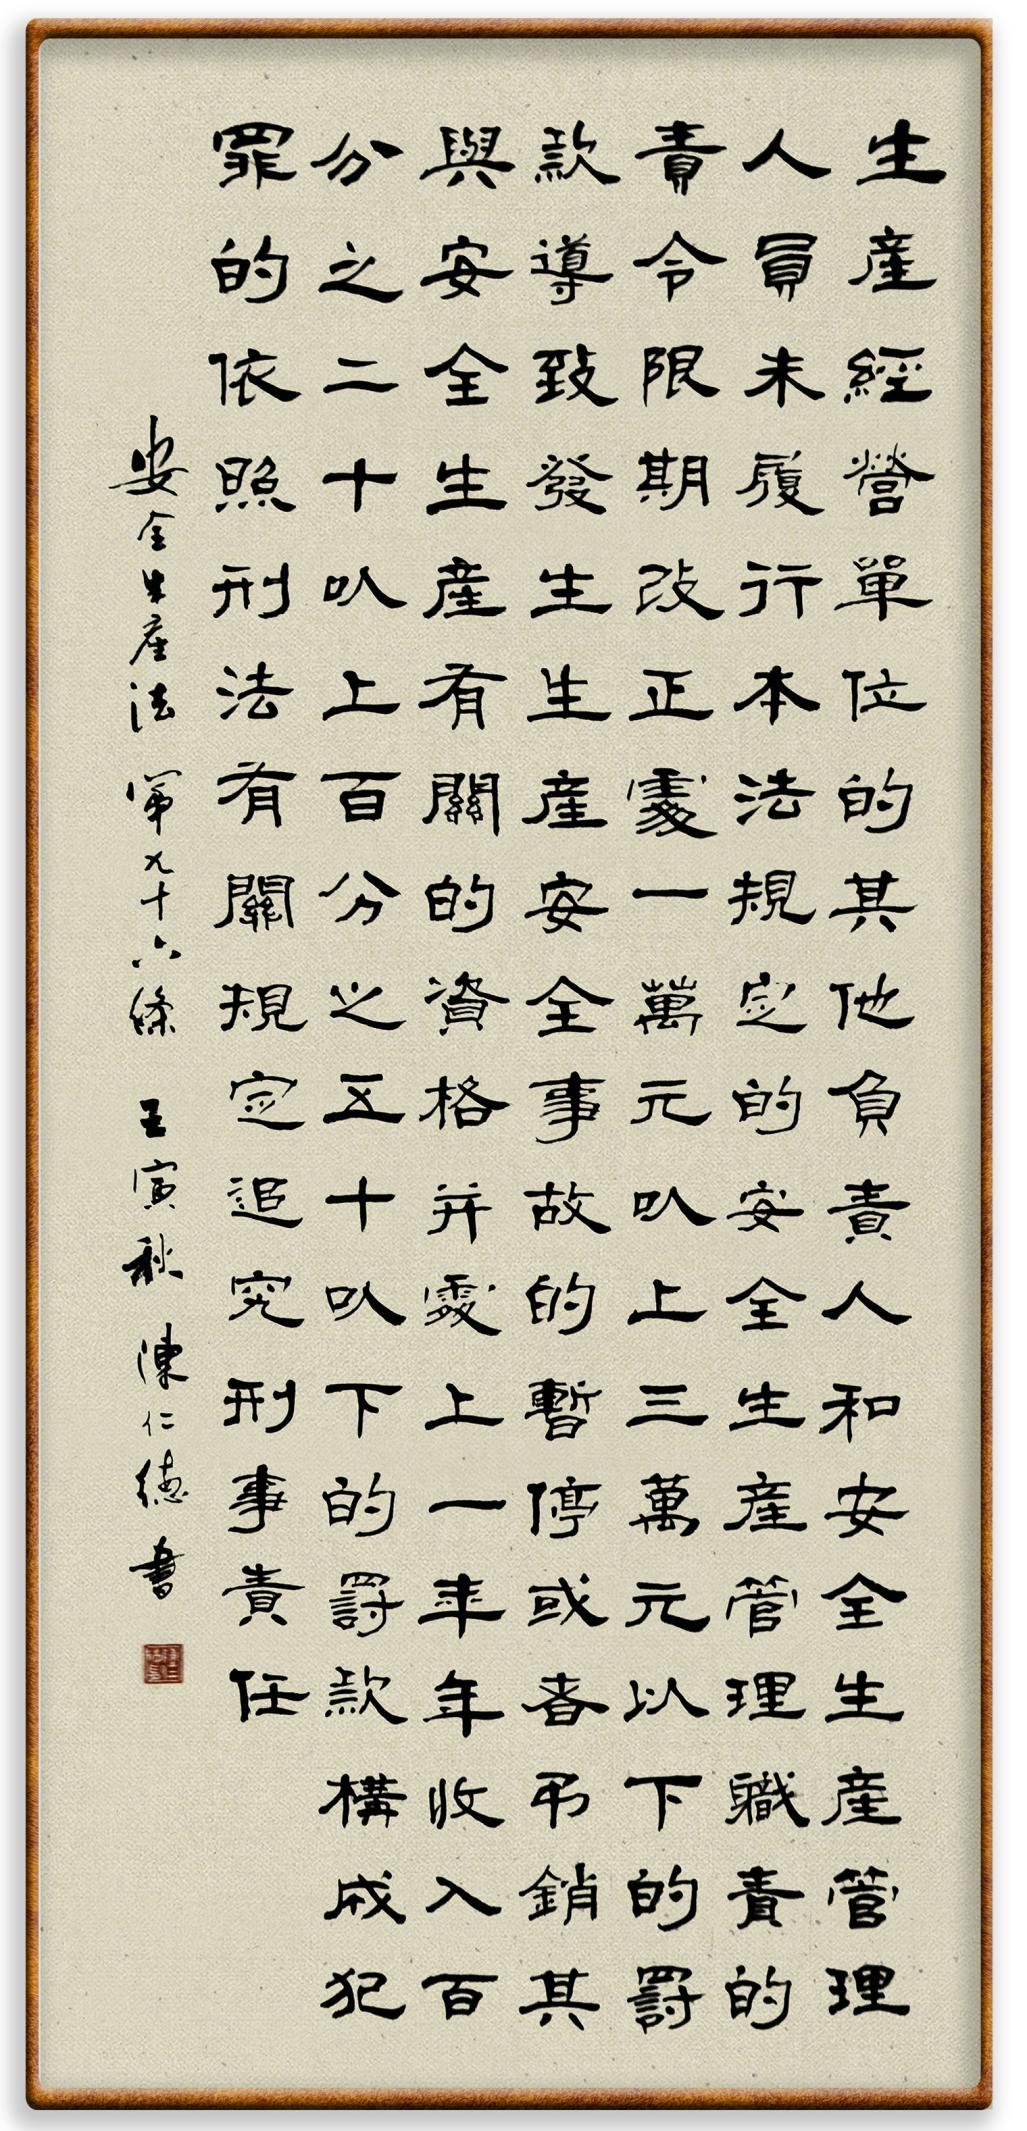 生產經營單位的其他負責人和安全生產管理
人員未履行本法規定的安全生產管理職責的
責令限期改正處一萬元以上三萬元以下的罰
款導致發生生產安全事故的暫停或者吊銷其
與安全生產有關的資格并處上一年年收入百
分之二十以上百分之五十以下的罰款構成犯
罪的依照刑法有關規定追究刑事責任
安全生產法 第九十六條 壬寅秋 陳仁德 書